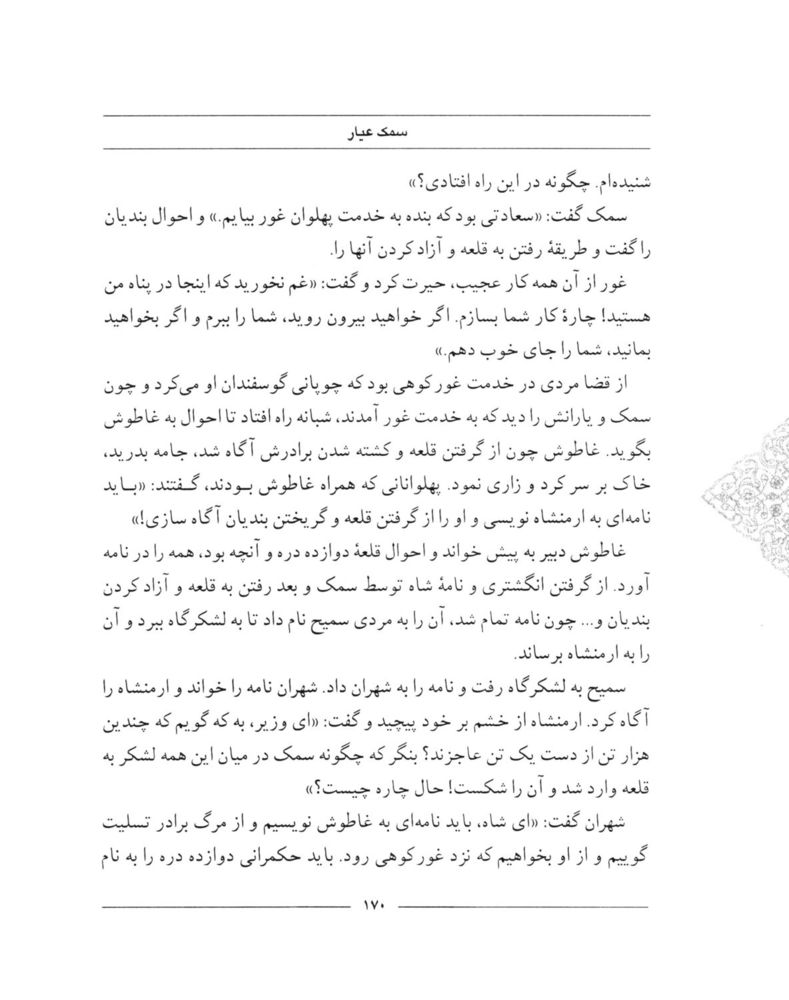 سمک عیار
شنیده‌ام. چگونه در این راه افتادی؟»
سمک گفت: «سعادتی بود که بنده به خدمت پهلوان غور بیایم.» و احوال بندیان
را گفت و طریقهٔ رفتن به قلعه و آزاد کردن آنها را.
غور از آن همه کار عجیب، حیرت کرد و گفت: «غم نخورید که اینجا در پناه من
هستید! چارهٔ کار شما بسازم. اگر خواهید بیرون روید، شما را ببرم و اگر بخواهید
بمانید، شما را جای خوب دهم.»
از قضا مردی در خدمت غورکوهی بود که چوپانی گوسفندان او می‌کرد و چون
سمک و یارانش را دید که به خدمت غور آمدند، شبانه راه افتاد تا احوال به غاطوش
بگوید. غاطوش چون از گرفتن قلعه و کشته شدن برادرش آگاه شد، جامه بدرید،
خاک بر سر کرد و زاری نمود. پهلوانانی که همراه غاطوش بودند، گفتند: «باید
نامه‌ای به ارمنشاه نویسی و او را از گرفتن قلعه و گریختن بندیان آگاه سازی!»
غاطوش دبیر به پیش خواند و احوال قلعهٔ دوازده دره و آنچه بود، همه را در نامه
آورد. از گرفتن انگشتری و نامهٔ شاه توسط سمک و بعد رفتن به قلعه و آزاد کردن
بندیان و... چون نامه تمام شد، آن را به مردی سمیح نام داد تا به لشکرگاه ببرد و آن
را به ارمنشاه برساند.
سمیح به لشکرگاه رفت و نامه را به شهران داد. شهران نامه را خواند و ارمنشاه را
آگاه کرد. ارمنشاه از خشم بر خود پیچید و گفت: «ای وزیر، به که گویم که چندین
هزار تن از دست یک تن عاجزند؟ بنگر که چگونه سمک در میان این همه لشکر به
قلعه وارد شد و آن را شکست! حال چاره چیست؟»
شهران گفت: «ای شاه، باید نامه‌ای به غاطوش نویسیم و از مرگ برادر تسلیت
گوییم و از او بخواهیم که نزد غورکوهی رود. باید حکمرانی دوازده دره را به نام
۱۷۰